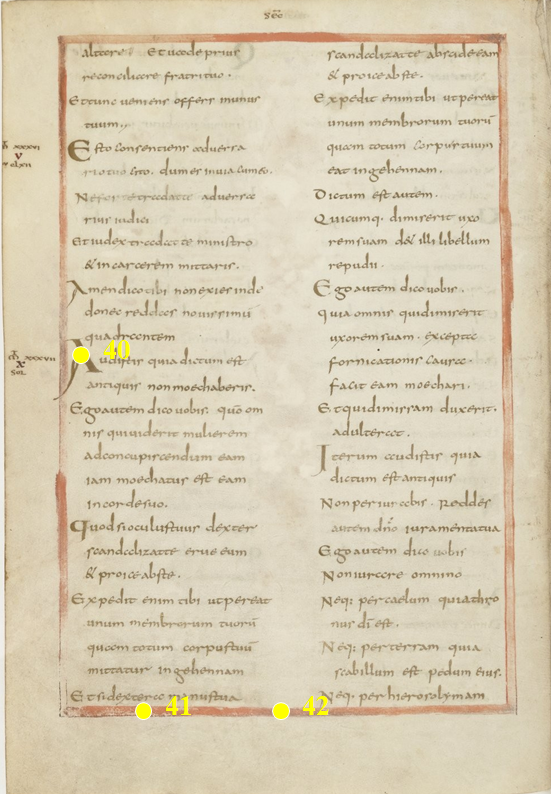 altare. Et uade prius
reconciliare fratrituo.
Ettunc ueniens offers munus
tuum.
Esto consentiens aduersa
riotuo cito. dumes inuia cumeo.
Neforte tradat te aduersa
rius iudici
Etiudex tradat te ministro
& incarcerem mittaris.
Amendicotibi nonexies inde
donec reddas nouissimū
quadrantem
40
Audistis quia dictum est
antiquis nonmoechaberis.
Egoautem dicouobis. quō om
nis quiuiderit mulierem
adconcupiscendum eam
iam moechatus est eam
incordesuo.
Quodsioculustuus dexter
scandalizatte erue eum
& proice abste.
Expedit enim tibi utpereat
unum membrorum tuorū
quam totum corpustuū
mittatur ingehennam
Etsidextera manustua
41
42
scandalizatte abscideeam
& proice abste.
Expedit enimtibi utpereat
unum membrorum tuorū
quam totum corpustuum
eat ingehennam.
Dictum estautem.
Quicumq. dimiserit uxo
remsuam d& illi libellum
repudii.
Egoautem dicouobis.
quia omnis quidimiserit
uxoremsuam. excepta
fornicationis causa.
facit eam moechari.
Etquidimissam duxerit.
adulterat.
Iterum audistis quia
dictum estantiquis
Nonperiurabis. Reddes
autem dn̄o iuramentatua
Egoautem dico uobis
Noniurare omnino
Neq: percaelum quiathro
nus dī est.
Neq: perterram quia
scabillum est pedum eius.
Neq: perhierosolymam